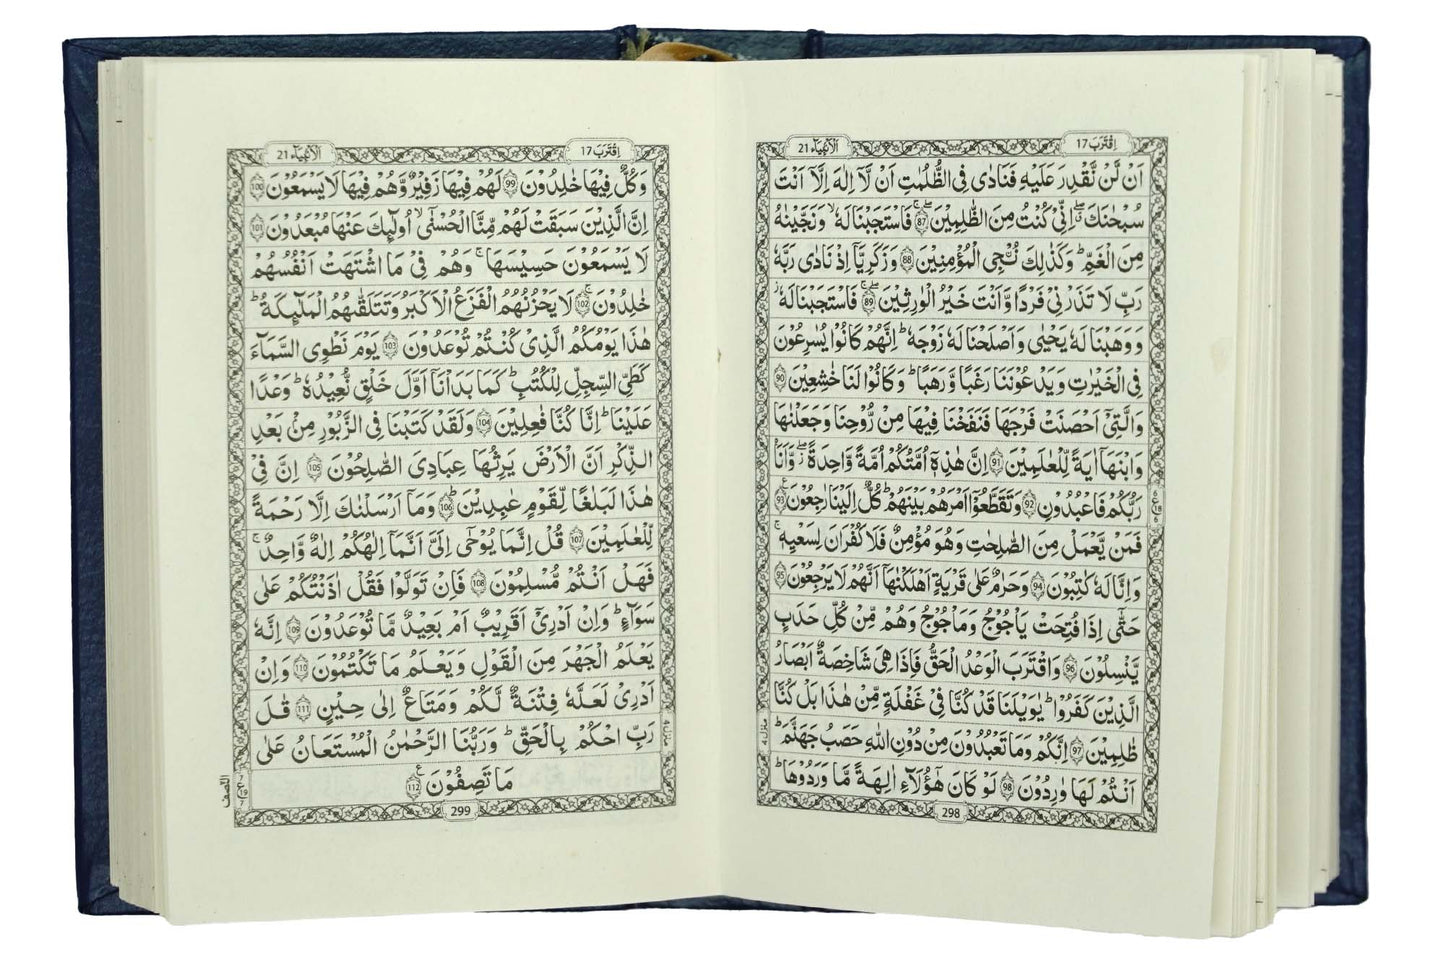 اِقْتَرَبَ 17
الْاَنْۢبِيَآء 21
اَنْ لَّنْ نَّقْدِرَ عَلَيْهِ فَنَادٰى فِى الظُّلُمٰتِ اَنْ لَّاۤ اِلٰهَ اِلَّاۤ اَنْتَ
سُبْحٰنَكَ ۖ اِنِّىْ كُنْتُ مِنَ الظّٰلِمِيْنَ ۚۖ 87 فَاسْتَجَبْنَا لَهٗ ۙ وَنَجَّيْنٰهُ
مِنَ الْغَمِّ ؕ وَكَذٰلِكَ نُـْۨجِى الْمُؤْمِنِيْنَ 88 وَزَكَرِيَّاۤ اِذْ نَادٰى رَبَّهٗ
رَبِّ لَا تَذَرْنِىْ فَرْدًا وَّاَنْتَ خَيْرُ الْوٰرِثِيْنَ ۚۖ 89 فَاسْتَجَبْنَا لَهٗ ؗ
وَوَهَبْنَا لَهٗ يَحْيٰى وَاَصْلَحْنَا لَهٗ زَوْجَهٗ ؕ اِنَّهُمْ كَانُوْا يُسٰرِعُوْنَ
فِى الْخَيْرٰتِ وَيَدْعُوْنَنَا رَغَبًا وَّرَهَبًا ؕ وَكَانُوْا لَنَا خٰشِعِيْنَ 90
وَالَّتِىْۤ اَحْصَنَتْ فَرْجَهَا فَنَفَخْنَا فِيْهَا مِنْ رُّوْحِنَا وَجَعَلْنٰهَا
وَابْنَهَاۤ اٰيَةً لِّلْعٰلَمِيْنَ 91 اِنَّ هٰذِهٖۤ اُمَّتُكُمْ اُمَّةً وَّاحِدَةً ۖؗ وَّاَنَا
رَبُّكُمْ فَاعْبُدُوْنِ 92 وَتَقَطَّعُوْۤا اَمْرَهُمْ بَيْنَهُمْ ؕ كُلٌّ اِلَيْنَا رٰجِعُوْنَ 93
فَمَنْ يَّعْمَلْ مِنَ الصّٰلِحٰتِ وَهُوَ مُؤْمِنٌ فَلَا كُفْرَانَ لِسَعْيِهٖ ۚ
وَاِنَّا لَهٗ كٰتِبُوْنَ 94 وَحَرٰمٌ عَلٰى قَرْيَةٍ اَهْلَكْنٰهَاۤ اَنَّهُمْ لَا يَرْجِعُوْنَ 95
حَتّٰٓى اِذَا فُتِحَتْ يَاْجُوْجُ وَمَاْجُوْجُ وَهُمْ مِّنْ كُلِّ حَدَبٍ
يَّنْسِلُوْنَ 96 وَاقْتَرَبَ الْوَعْدُ الْحَقُّ فَاِذَا هِىَ شَاخِصَةٌ اَبْصَارُ
الَّذِيْنَ كَفَرُوْا ؕ يٰوَيْلَنَا قَدْ كُنَّا فِىْ غَفْلَةٍ مِّنْ هٰذَا بَلْ كُنَّا
ظٰلِمِيْنَ 97 اِنَّكُمْ وَمَا تَعْبُدُوْنَ مِنْ دُوْنِ اللّٰهِ حَصَبُ جَهَنَّمَ ؕ
اَنْتُمْ لَهَا وٰرِدُوْنَ 98 لَوْ كَانَ هٰٓؤُلَاۤءِ اٰلِهَةً مَّا وَرَدُوْهَا ؕ
6
ع 18
6
منزل 4
298
اِقْتَرَبَ 17
الْاَنْۢبِيَآء 21
وَكُلٌّ فِيْهَا خٰلِدُوْنَ 99 لَهُمْ فِيْهَا زَفِيْرٌ وَّهُمْ فِيْهَا لَا يَسْمَعُوْنَ 100
اِنَّ الَّذِيْنَ سَبَقَتْ لَهُمْ مِّنَّا الْحُسْنٰٓى ۙ اُولٰٓئِكَ عَنْهَا مُبْعَدُوْنَ 101
لَا يَسْمَعُوْنَ حَسِيْسَهَا ۚ وَهُمْ فِىْ مَا اشْتَهَتْ اَنْفُسُهُمْ
خٰلِدُوْنَ ۚ 102 لَا يَحْزُنُهُمُ الْفَزَعُ الْاَكْبَرُ وَتَتَلَقّٰىهُمُ الْمَلٰٓئِكَةُ ؕ
هٰذَا يَوْمُكُمُ الَّذِىْ كُنْتُمْ تُوْعَدُوْنَ 103 يَوْمَ نَطْوِى السَّمَآءَ
كَطَىِّ السِّجِلِّ لِلْكُتُبِ ؕ كَمَا بَدَاْنَاۤ اَوَّلَ خَلْقٍ نُّعِيْدُهٗ ؕ وَعْدًا
عَلَيْنَا ؕ اِنَّا كُنَّا فٰعِلِيْنَ 104 وَلَقَدْ كَتَبْنَا فِى الزَّبُوْرِ مِنْۢ بَعْدِ
الذِّكْرِ اَنَّ الْاَرْضَ يَرِثُهَا عِبَادِىَ الصّٰلِحُوْنَ 105 اِنَّ فِىْ
هٰذَا لَبَلٰغًا لِّقَوْمٍ عٰبِدِيْنَ ؕ 106 وَمَاۤ اَرْسَلْنٰكَ اِلَّا رَحْمَةً
لِّلْعٰلَمِيْنَ 107 قُلْ اِنَّمَا يُوْحٰۤى اِلَىَّ اَنَّمَاۤ اِلٰهُكُمْ اِلٰهٌ وَّاحِدٌ ۚ
فَهَلْ اَنْتُمْ مُّسْلِمُوْنَ 108 فَاِنْ تَوَلَّوْا فَقُلْ اٰذَنْتُكُمْ عَلٰى
سَوَآءٍ ؕ وَاِنْ اَدْرِىْۤ اَقَرِيْبٌ اَمْ بَعِيْدٌ مَّا تُوْعَدُوْنَ 109 اِنَّهٗ
يَعْلَمُ الْجَهْرَ مِنَ الْقَوْلِ وَيَعْلَمُ مَا تَكْتُمُوْنَ 110 وَاِنْ
اَدْرِىْ لَعَلَّهٗ فِتْنَةٌ لَّكُمْ وَمَتَاعٌ اِلٰى حِيْنٍ 111 قٰلَ
رَبِّ احْكُمْ بِالْحَقِّ ؕ وَرَبُّنَا الرَّحْمٰنُ الْمُسْتَعَانُ عَلٰى
مَا تَصِفُوْنَ 112
منزل 4
النصف
ع 19
7
299